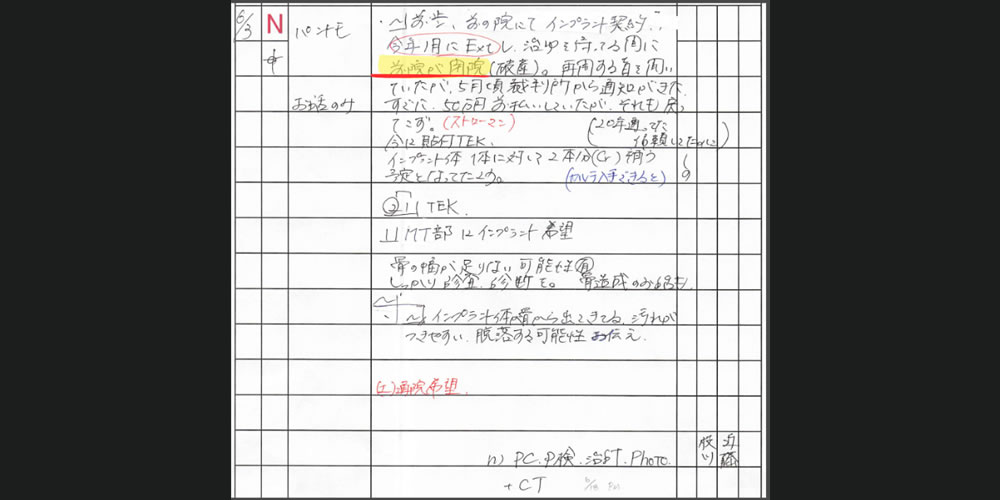 6/3 N パントモ
お話のみ
前の院にて インプラント契約
今年1月に Extし、治ゆを待ってる間に
前院が閉院(破産)。再開する旨を聞い
ていたが、5月頃裁判所から通知がきた
すでに、50万円お払いしていたが、それも戻っ
てこず。(ストローマン) (20年通ってた 信頼してたのに)
今は貼付TEK、
インプラント体 1体に対して2本分(Cr)補う
予定となってた (カルテ入手できると)
② 1 TEK.
1 MT部にインプラント希望
骨の幅が足りない可能性有
しっかり診査、診断を。骨造成のお話も、
インプラント体 骨から出てきてる、汚れが
つきやすい、脱落する可能性お伝え.
当院希望
n) PC. P検. 治計. Photo.
+ CT